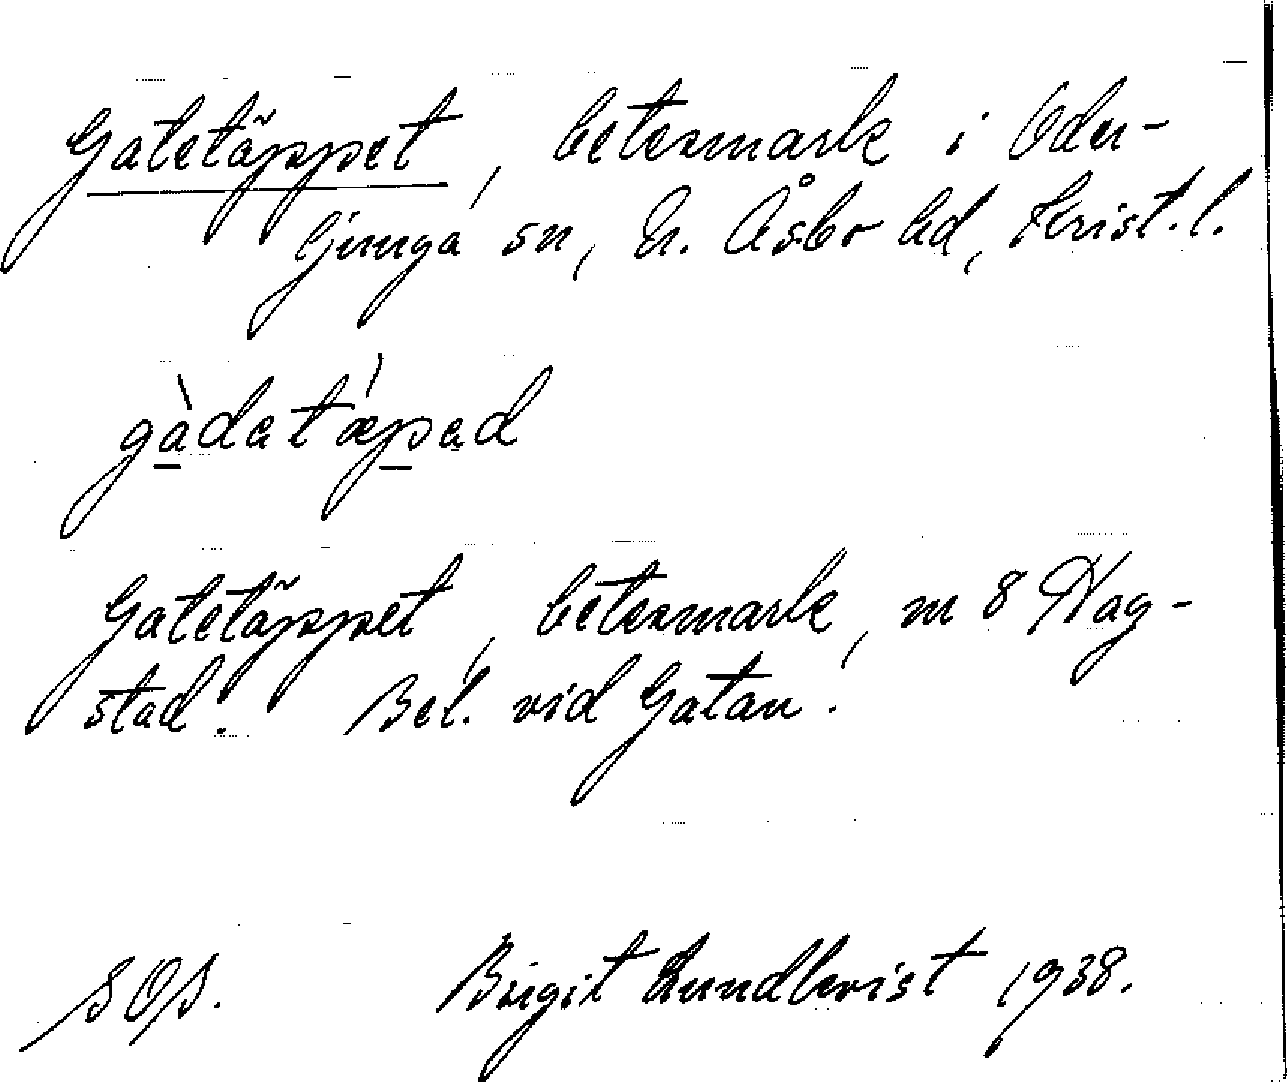 Gatetäppet, betesmark i Oder-
ljunga sn, N. Åsbo hd, Krist. l.
gàdatæ̀pad
Gatetäppet, betesmark, m 8 Hag-
stad. Bel. vid Gatan.
SOS. Birgit Lundkvist 1938.